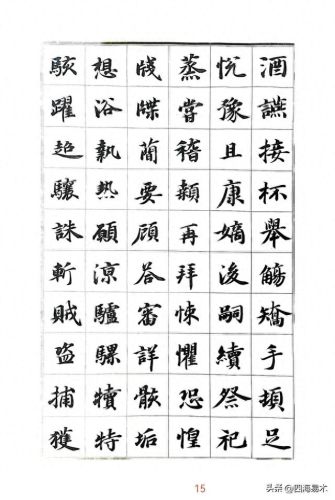 酒讌接杯舉觴矯手頓足
悅豫且康嫡後嗣續祭祀
蒸嘗稽顙再拜悚懼恐惶
牋牒簡要顧答審詳骸垢
想浴執熱願涼驢騾犢特
駭躍超驤誅斬賊盜捕獲
15
头条@四海易木